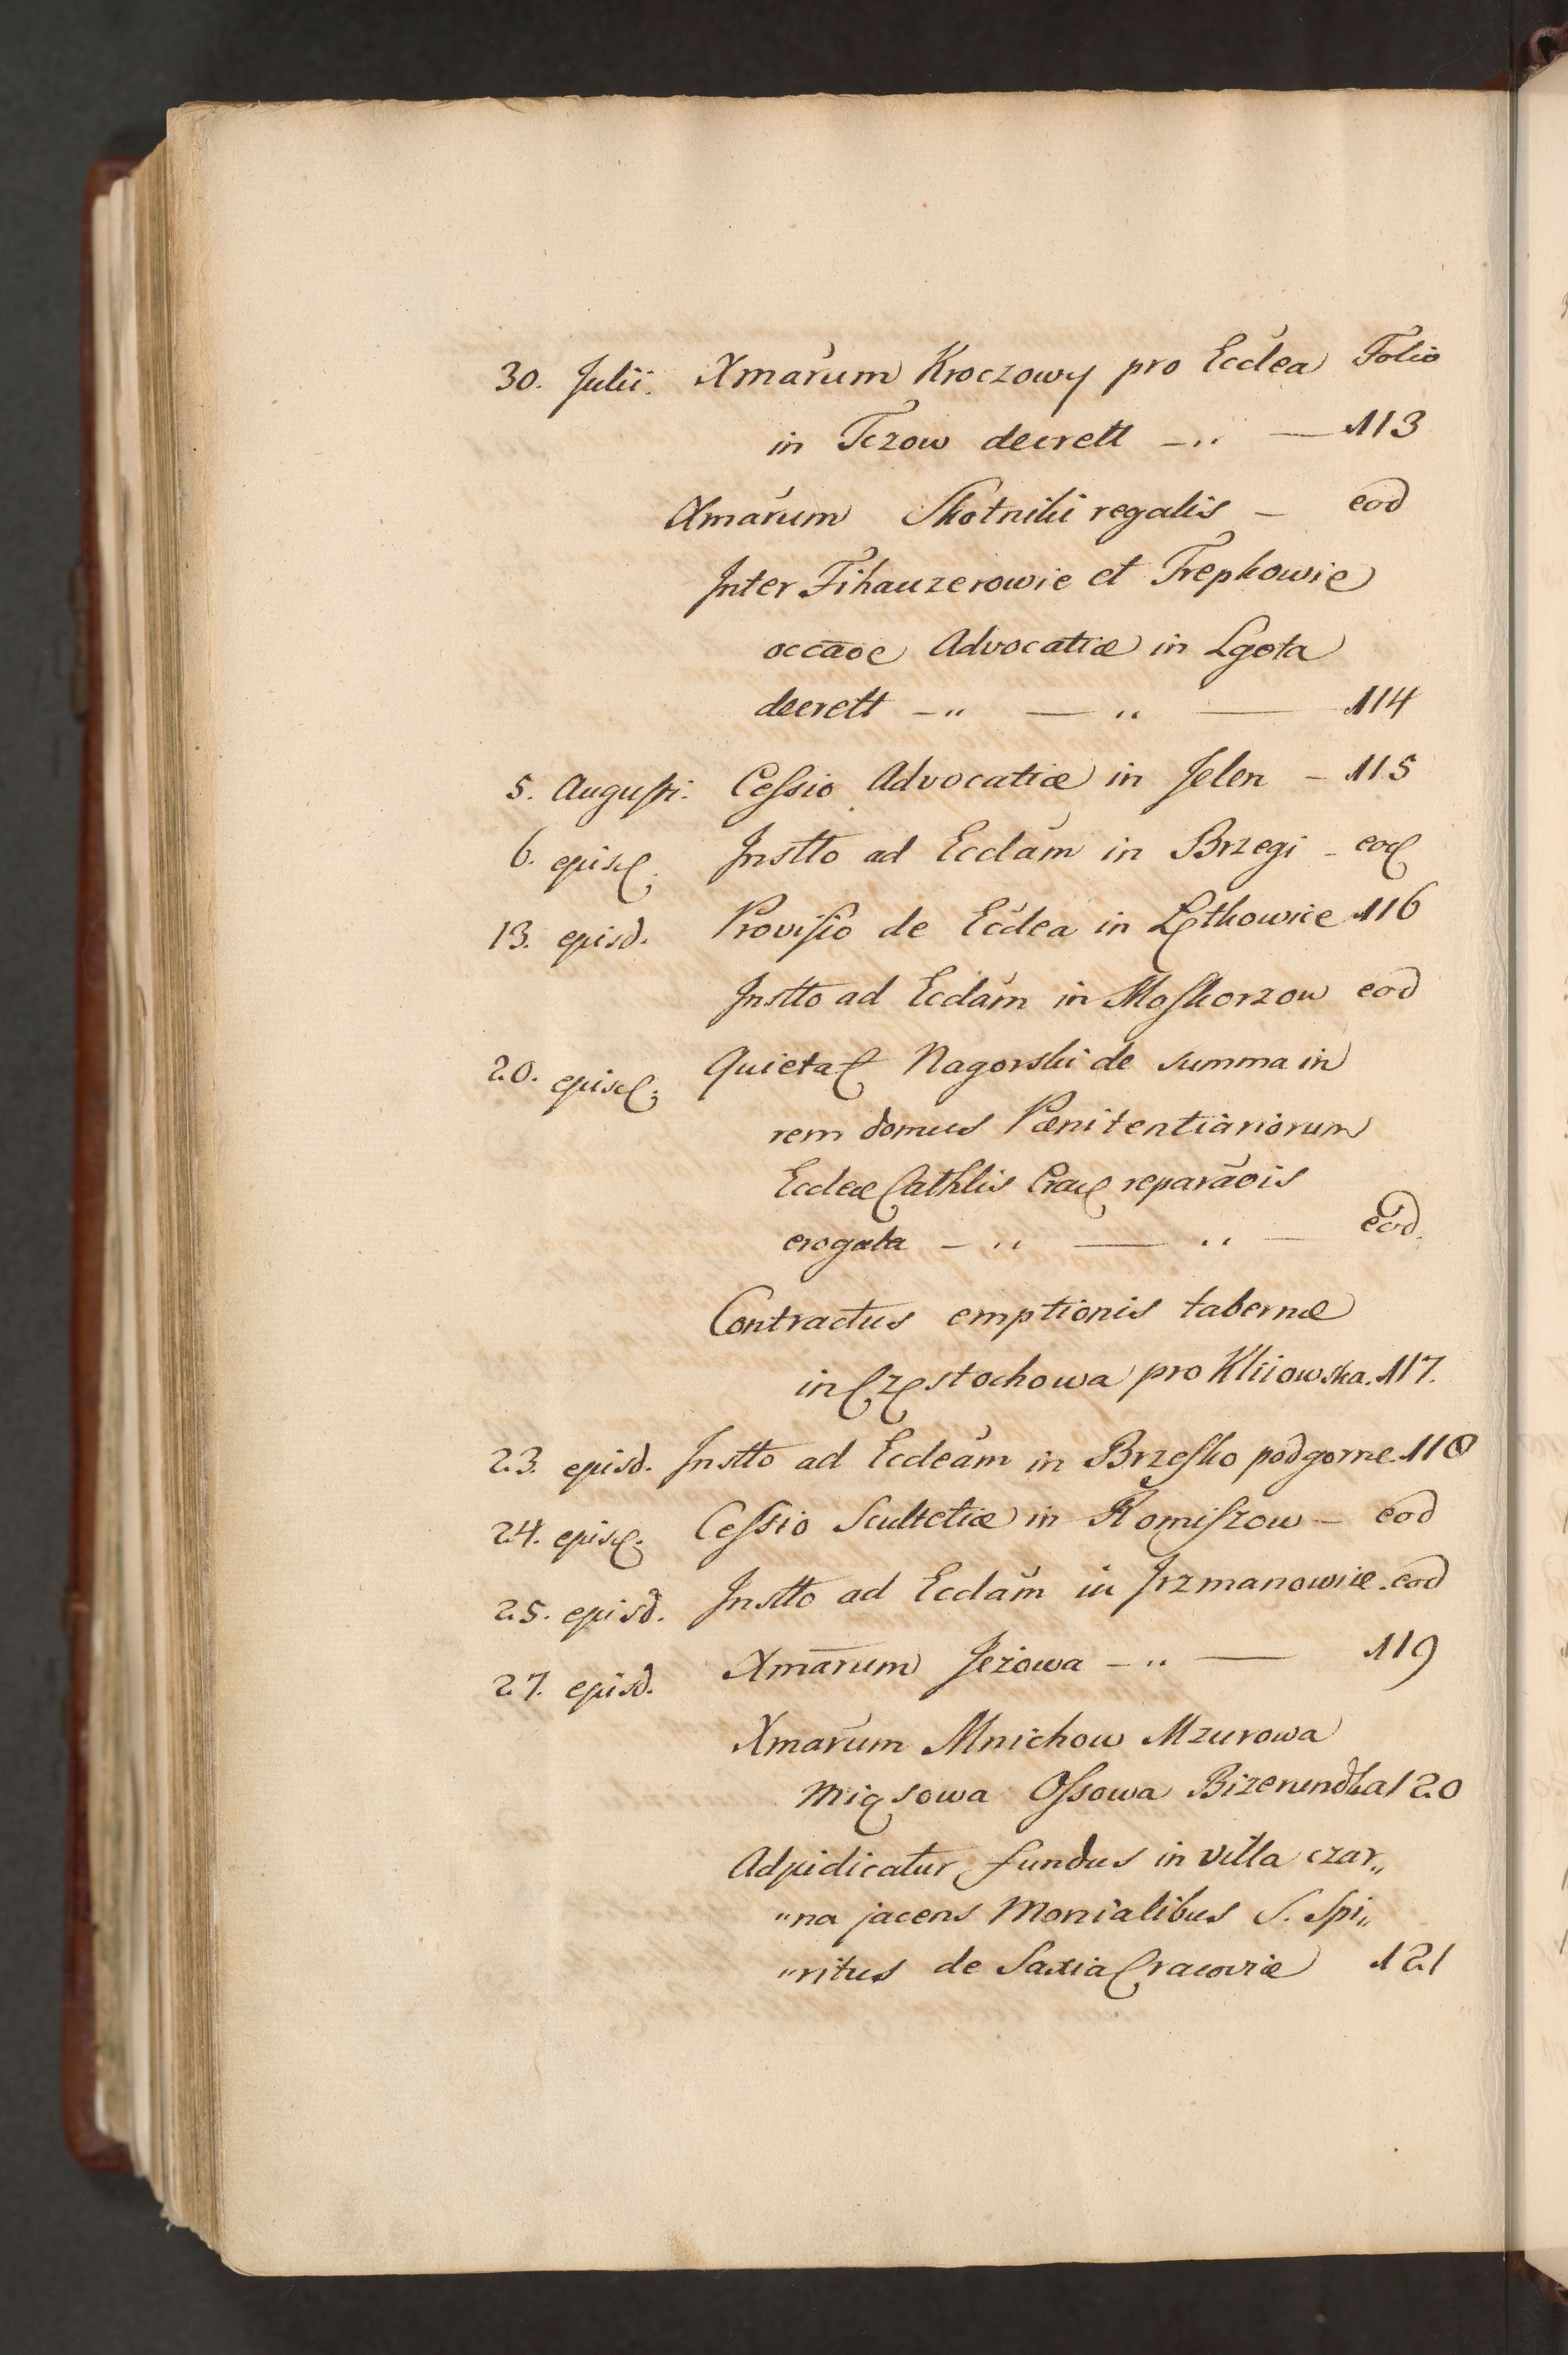 30. Julii. Xmarum Kroczowy pro Ecclea Folio
in Tczow decrett -" — 113
Xmarum Skotniki regalis - eod
Inter Fihauzerowie et Trepkowie
occaoe Advocatiæ in Lgota
decrett -" — " — 114
5. Augusti. Cessio Advocatiæ in Jelen - 115
6. ejusd. Instto ad Ecclam in Brzegi - eod
13. ejusd. Provisio de Ecclea in Lętkowice 116
Instto ad Ecclam in Moskorzow eod
20. ejusd. Quietat Nagorski de summa in
rem domus Pænitentiariorum
Eccleæ Cathlis Crac reparaois
erogata -" — " — eod.
Contractus emptionis tabernæ
in Częstochowa pro Kliiowska. 117.
23. ejusd. Instto ad Eccleam in Brzesko podgorne. 118
24. ejusd. Cessio Scultetiæ in Komiszow - eod
25. ejusd. Instto ad Ecclam in Jrzmanowice. eod
27. ejusd. Xmarum Jeżowa -" — 119
Xmarum Mnichow Mzurowa
Miąsowa Ossowa 120
Adjudicatur fundus in villa czar„
„na jacens Monialibus S. Spi„
„ritus de Saxia Cracoviæ 121